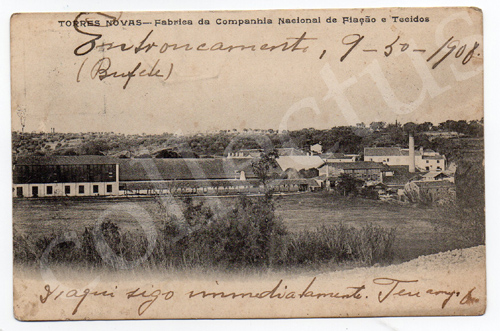 TORRES NOVAS— Fabrica da Companhia Nacional de Fiação e Tecidos
Entroncamento, 9-50-1908
(Bufete)
D'aqui sigo immediatamente. Ten